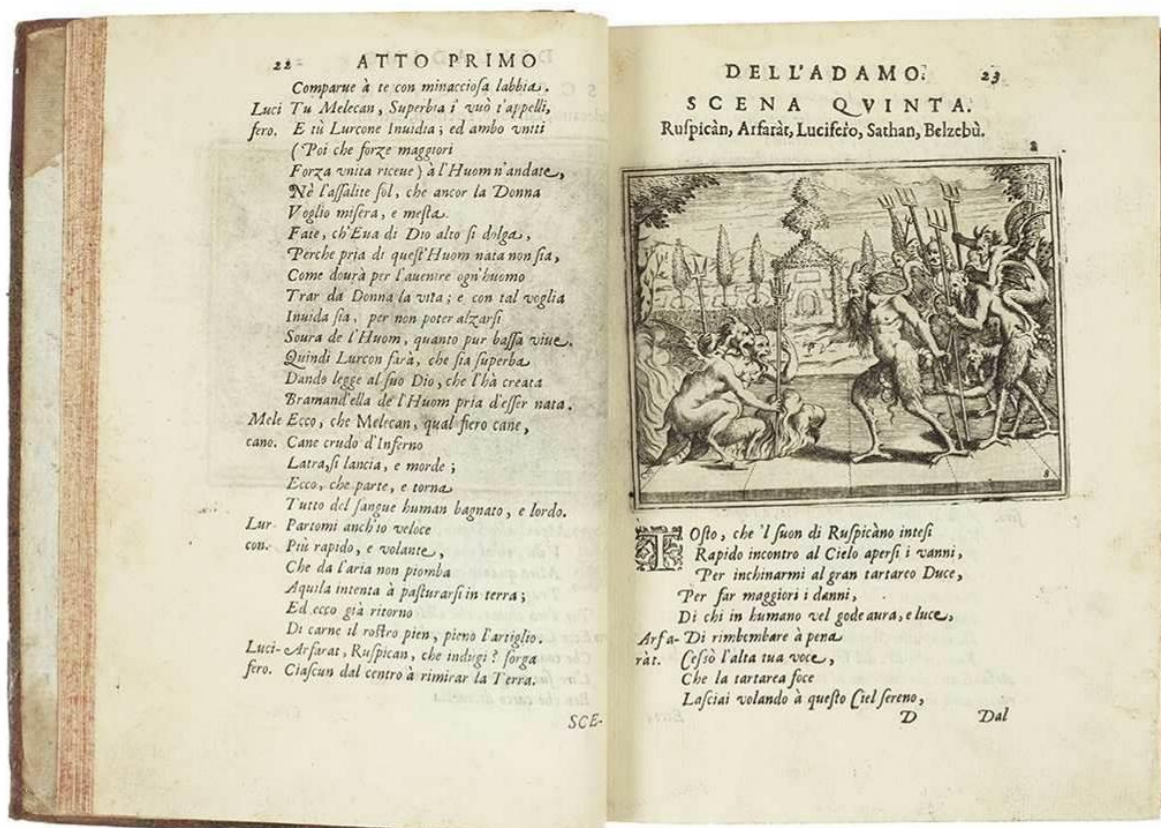 22 ATTO PRIMO
Comparue à te con minacciosa labbia.
Luci Tu Melecan, Superbia i' vuò t'appelli,
fero. E tù Lurcone Inuidia; ed ambo vniti
(Poi che forze maggiori
Forza vnita riceue) à l'Huom n'andate,
Nè l'assalite sol, che ancor la Donna
Voglio misera, e mesta.
Fate, ch'Eua di Dio alto si dolga,
Perche pria di quest'Huom nata non sia,
Come dourà per l'auenire ogn'huomo
Trar da Donna la vita; e con tal voglia
Inuida sia, per non poter alzarsi
Soura de l'Huom, quanto pur bassa viue.
Quindi Lurcon farà, che sia superba
Dando legge al suo Dio, che l'hà creata
Bramand'ella de l'Huom pria d'esser nata.
Mele Ecco, che Melecan, qual fiero cane,
cano. Cane crudo d'Inferno
Latra, si lancia, e morde;
Ecco, che parte, e torna
Tutto del sangue human bagnato, e lordo.
Lur- Partomi anch'io veloce
con. Più rapido, e volante,
Che da l'aria non piomba
Aquila intenta à pasturarsi in terra;
Ed ecco già ritorno
Di carne il rostro pien, pieno l'artiglio.
Luci- Arfarat, Ruspican, che indugi? sorga
fero. Ciascun dal centro à rimirar la Terra.
SCE-
DELL'ADAMO. 23
SCENA QVINTA.
Ruspicàn, Arfaràt, Lucifero, Sathan, Belzebù.
TOsto, che 'l suon di Ruspicàno intesi
Rapido incontro al Cielo apersi i vanni,
Per inchinarmi al gran tartareo Duce,
Per far maggiori i danni,
Di chi in humano vel gode aura, e luce,
Arfa- Di rimbembare à pena
ràt. Cessò l'alta tua voce,
Che la tartarea foce
Lasciai volando à questo Ciel sereno,
D Dal